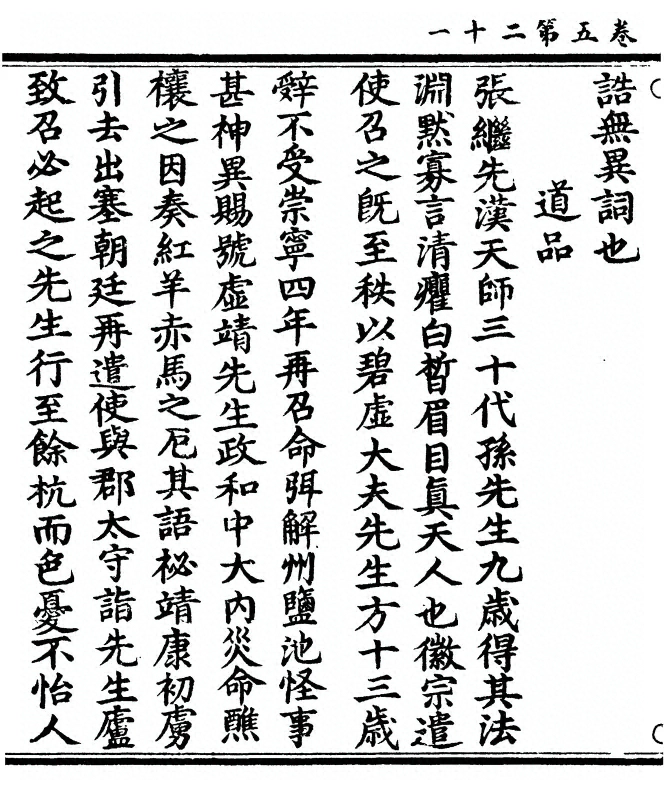 卷五第二十一
誥無異詞也
道品
張繼先漢天師三十代孫先生九歳得其法
淵默寡言清癯白晳眉目眞天人也徽宗遣
使召之旣至秩以碧虛大夫先生方十三歳
辤不受崇寧四年再召命弭解州鹽池怪事
甚神異賜號虛靖先生政和中大内災命醮
禳之因奏紅羊赤馬之厄其語祕靖康初虜
引去出塞朝廷再遣使與郡太守詣先生廬
致召必起之先生行至餘杭而色憂不怡人